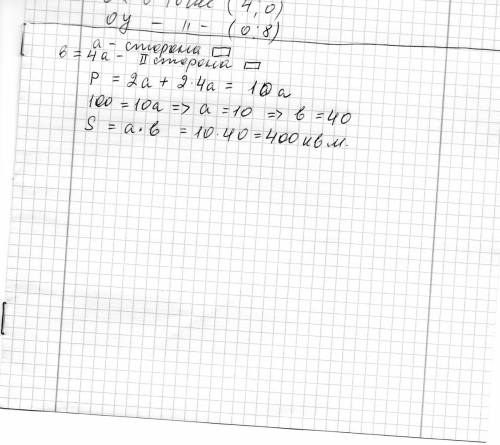 в точке (4,0)
OY – " – (0;8)
a - сторона ▭
в = 4a - II сторона ▭
P = 2a + 2·4a = 10a
100 = 10a => a = 10 => в = 40
S = a·в = 10·40 = 400 кв м.